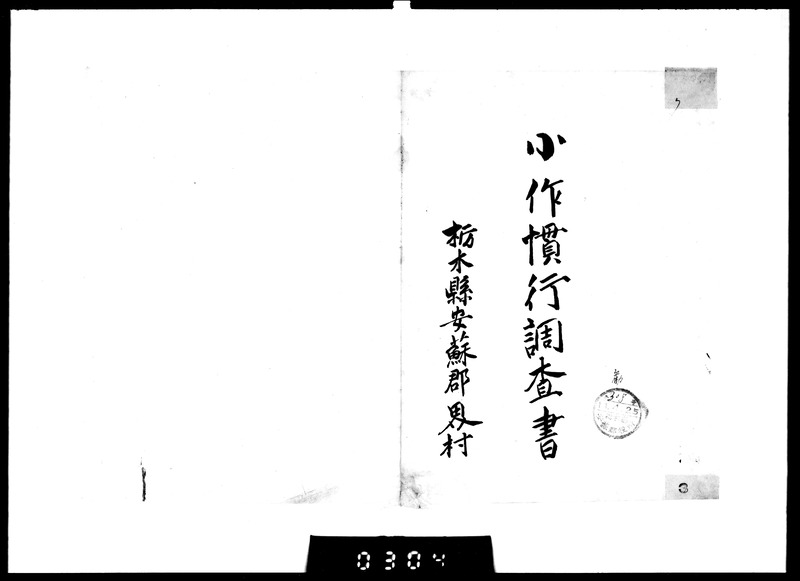 小作慣行調査書
栃木縣安蘇郡界村
0304